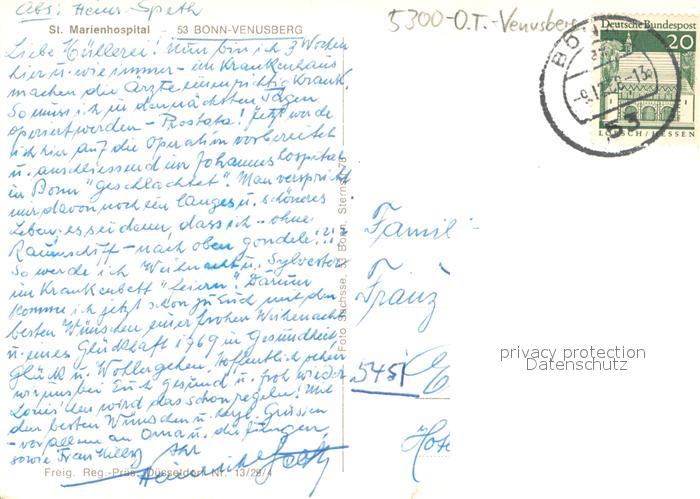 Abs: Heinr. Spath
5300-O.T.-Venusberg
St. Marienhospital 53 BONN-VENUSBERG
Deutsche Bundespost
20
LORSCH/HESSEN
BONN
53
Liebe Hüllerei! Nun bin ich 3 Wochen
hier u. wie immer - im Krankenhaus
machen die Ärzte einen richtig krank.
So muss ich in den nächsten Tagen
operiert werden - Prostata! Jetzt werde
ich hier auf die Operation vorbereitet
u. anschliessend im Johanneshospital
in Bonn "geschlachtet". Man verspricht
mir davon noch ein langes u. schöneres
Leben; es sei denn, dass ich - ohne
Raumschiff - nach oben gondele!!!
So werde ich Weihnacht u. Sylvester
im Krankenbett "feiern". Darum
komme ich jetzt schon zu Euch mit den
besten Wünschen einer frohen Weihnacht
u. eines Glückhaft 1969 in Gesundheit,
Glück u. Wohlergehen. Hoffentlich sehen
wir uns bei Euch gesund u. froh wieder.
wird das schon regeln! Mit
den besten Wünschen u. herzl. Grüssen
- vor allem an Oma u. die Jungen,
sowie Frau Ihr
Foto Sachsse, 53 Bonn, Sternstr. 76
Famil
Franz
545
Hote
privacy protection
Datenschutz
Freig. Reg.-Präs. Düsseldorf Nr. 13/29/4